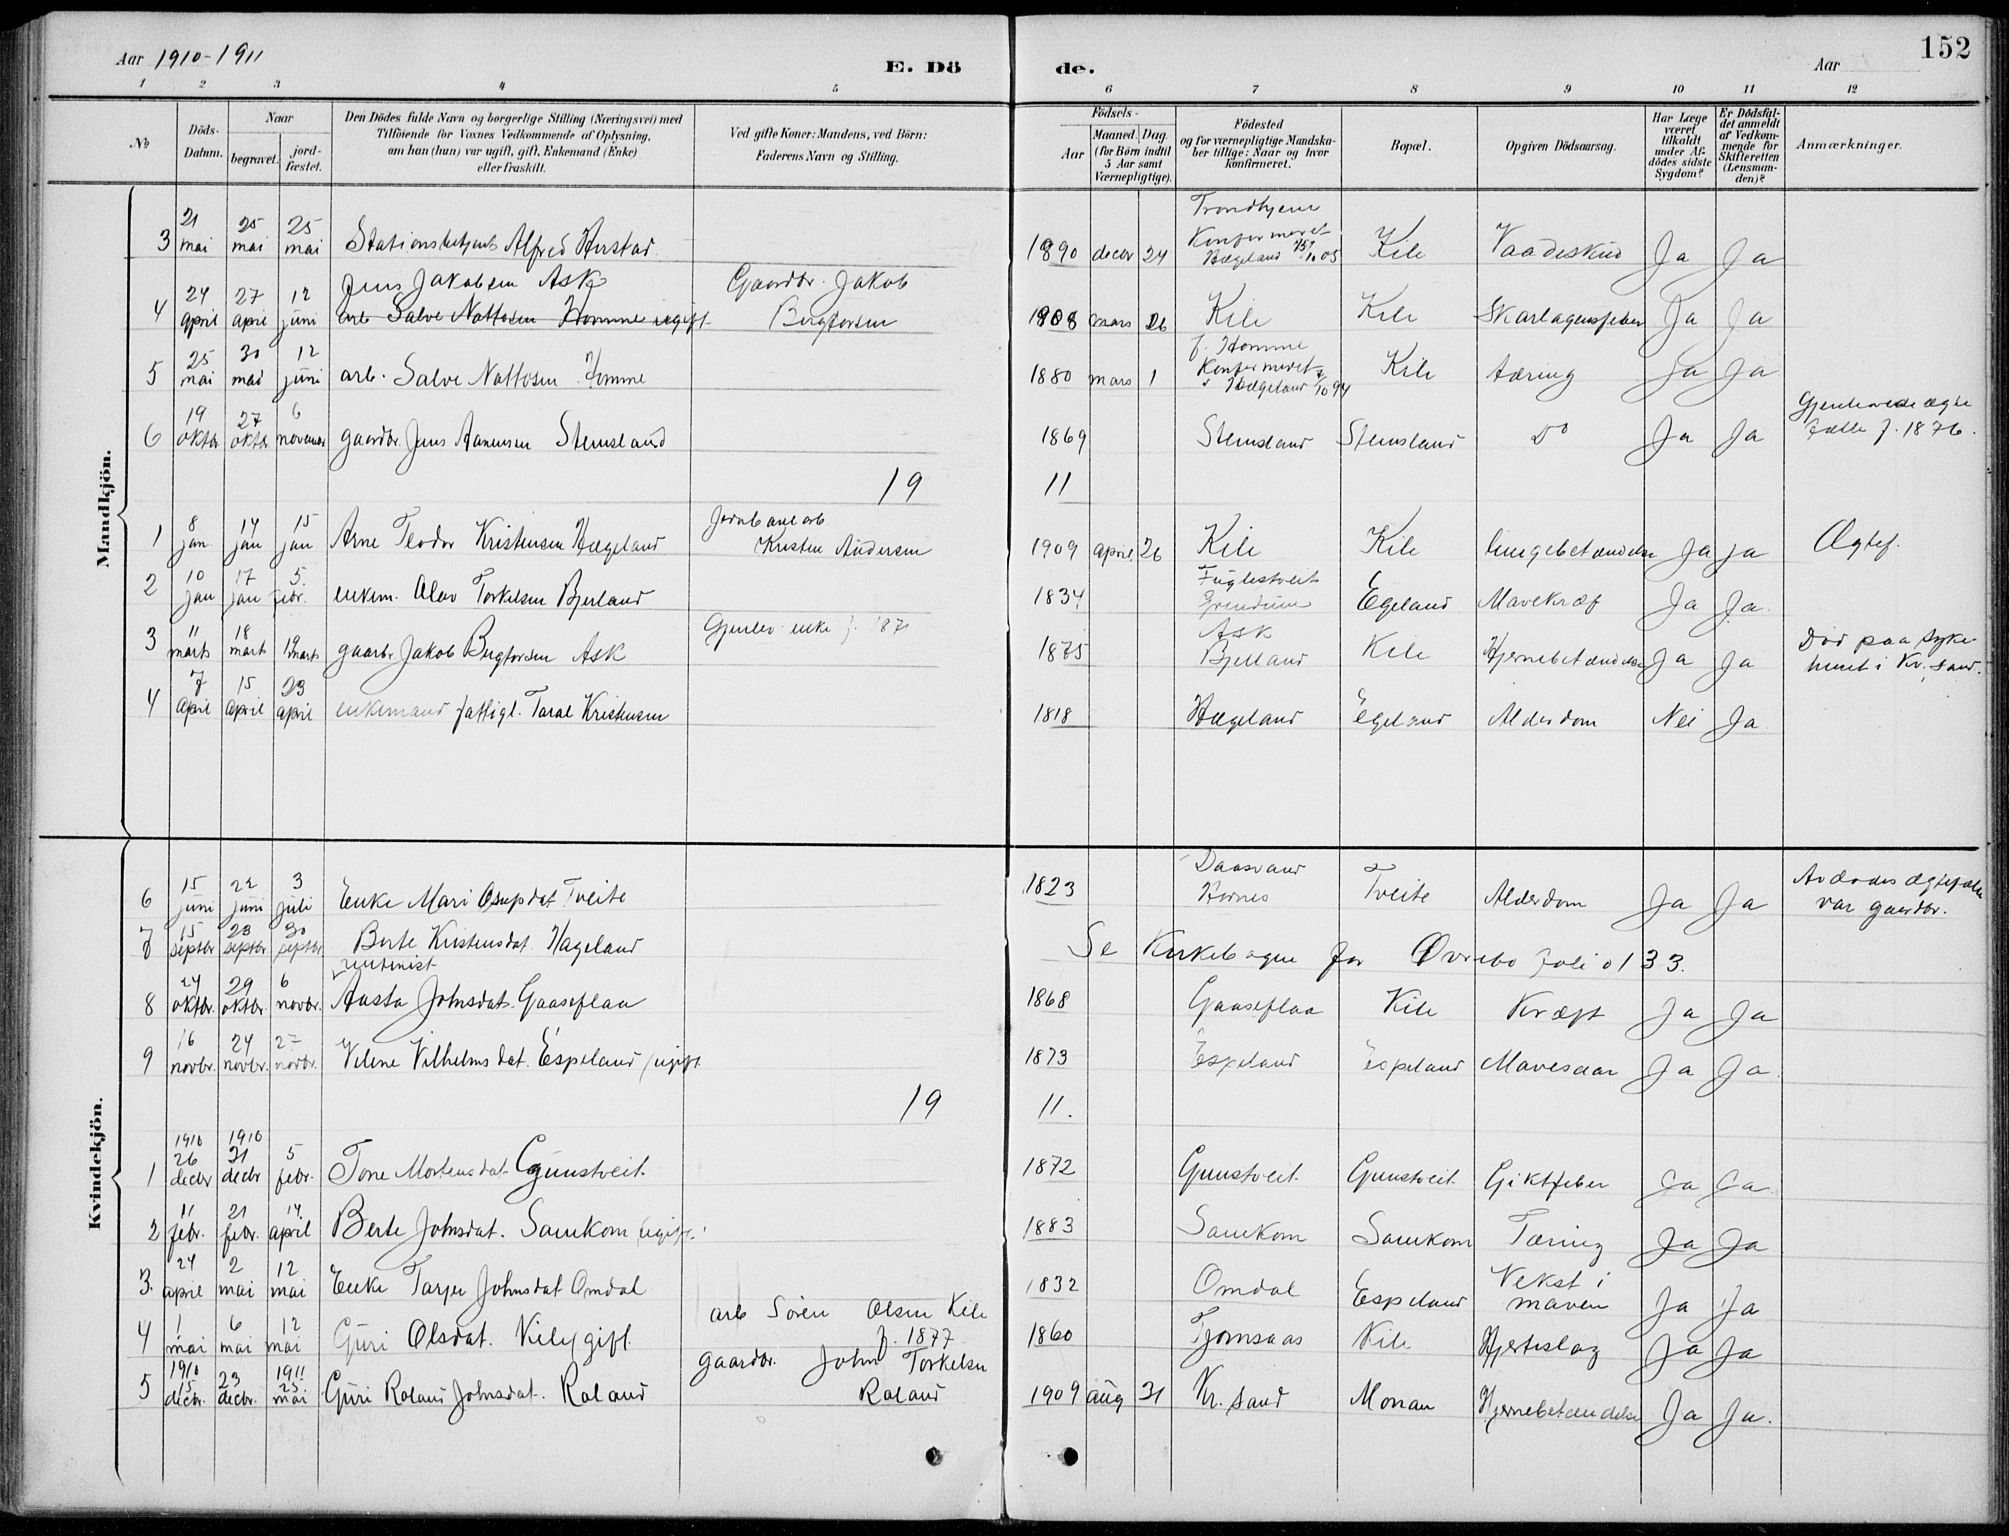 Aar 1910-1911
E. Dö
de.
Aar
152
1 2 3 4 5 6 7 8 9 10 11 12
No
Döds-
Datum.
Naar
begravet.
jord-
fæstet.
Den Dödes fulde Navn og borgerlige Stilling (Næringsvei) med
Tilföiende for Voxnes Vedkommende af Oplysning,
om han (hun) var ugift, gift, Enkemand (Enke)
eller fraskilt.
Ved gifte Koner: Mandens, ved Börn:
Faderens Navn og Stilling.
Födsels-
Aar
Maaned. Dag.
(for Börn indtil
5 Aar samt
Værnepligtige).
Födested
og for værnepligtige Mandska-
ber tillige: Naar og hvor
konfirmeret.
Bopæl.
Opgiven Dödsaarsag.
Har Læge
været
tilkaldt
under Af-
dödes sidste
Sygdom?
Er Dödsfal-
det anmeldt
af Vedkom-
mende for
Skifteretten
(Lensman-
den)?
Anmærkninger.
Mandkjön.
3 21 mai 25 mai 25 mai Stationsbetjent Alfred 1890 decbr 24 Trondhjem Konfirmeret Hægeland 05 Kile Vaadeskud Ja Ja
4 24 april 27 april 12 juni Jens Jakobsen Ask Gaardbr. Jakob
arb Salve Nattosen Homme ugift Bergtorsen 1908 mars 26 Kile Kile Skarlagensfeber Ja Ja
5 25 mai 30 mai 12 juni arb. Salve Nattosen Homme 1880 mars 1 f. Homme Konfirmeret i Hægeland 94 Kile tæring Ja Ja
6 19 oktbr 27 oktbr 6 novembr gaardbr. Jens Aanensen Stemsland 1869 Stemsland Stemsland Do Ja Ja Gjenlevende ægte
fælle f. 1876.
19 11
1 8 jan. 14 jan 15 jan Arne Teodor Kristensen Hægeland Jernbanearb
Kristen Andersen 1909 april 26 Kile Kile lungebetændelse Ja ja Ægtef.
2 10 jan 17 jan 5. febr. enkem. Olav Torkelsen Bjerland 1834 Fuglestveit Egeland Mavekræf Ja Ja.
3 11 marts 18 mart 19 marts gaarbr. Jakob Bergtorsen Ask Gjenlev enke f. 1871 1875 Ask
Bjelland Kile Hjernebetændelse Ja Ja Död paa syke-
huset i Kr.sand.
4 7 april 15 april 23 april enkemand fattigl. Taral Kristensen 1818 Hægeland Egeland Alderdom Nei Ja
Kvindekjön.
6 15 juni 22 juni 3 juli Enke Mari Osupdat Tveite 1823 Daasvand
Tveite Alderdom Ja Ja Avdødes ægtefælle
var gaardbr.
7 15 septbr 23 septbr 30 septbr Berte Kristensdat. Hægeland Se Kirkebogen for Øvrebo folio 133.
8 24 oktbr. 29 oktbr. 6 novbr. Aasta Johnsdat. Gaaseflaa 1868 Gaaseflaa Kile Kræft Ja Ja
9 16 novbr. 24 novbr. 27 novbr. Vilene Vilhelmsdat. Espeland (ugift. 1873 Espeland Espeland Mavesaar Ja Ja.
19 11.
1 1910 26 decbr 1910 31 decbr 5 febr. Tone Mortensdat. Gunstveit. 1872 Gunstveit. Gunstveit. Giktfeber Ja Ja
2 11 febr. 21 febr. 14. april Berte Johnsdat. Samkom (ugift. 1883 Samkom Samkom Tæring Ja Ja
3. 24 april 2 mai 12 mai Enke Tarjer Johnsdat Omdal 1832 Omdal Espeland Vekst i
maven Ja Ja
4 1 mai 6 mai 12 mai Guri Olsdat. Kile gift. arb Sören Olsen Kile
f. 1877 1860 Tjomsaas Kile Hjerteslag Ja Ja
5 1910 15 decbr. 23 decbr. 1911 25 mai Guri Roland Johnsdat. Roland gaardbr. John Torkelsen
Roland 1909 aug 31 Kr.sand Monan Hjernebetændelse Ja Ja.